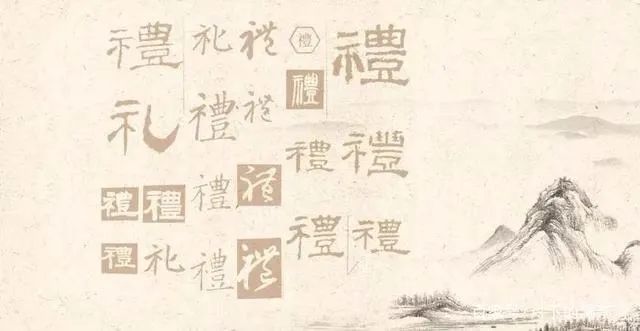 禮
礼
禮 禮
禮 礼
礼
禮
禮
禮
禮
禮
禮
禮
禮
禮
禮
禮
禮
禮
禮